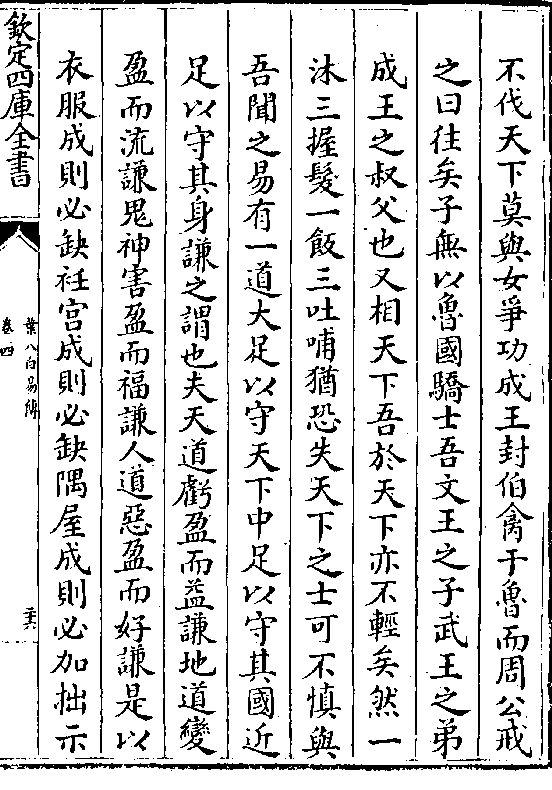 不伐天下莫與女爭功成王封伯禽于魯而周公戒
之曰往矣子無以魯國驕士吾文王之子武王之弟
成王之叔父也又相天下吾於天下亦不輕矣然一
沐三握髮一飯三吐哺猶恐失天下之士可不慎與
吾聞之易有一道大足以守天下中足以守其國近
足以守其身謙之謂也夫天道虧盈而益謙地道變
盈而流謙鬼神害盈而福謙人道惡盈而好謙是以
衣服成則必缺衽宮成則必缺隅屋成則必加拙示
欽定四庫全書
葉八白易傳
卷四
二六